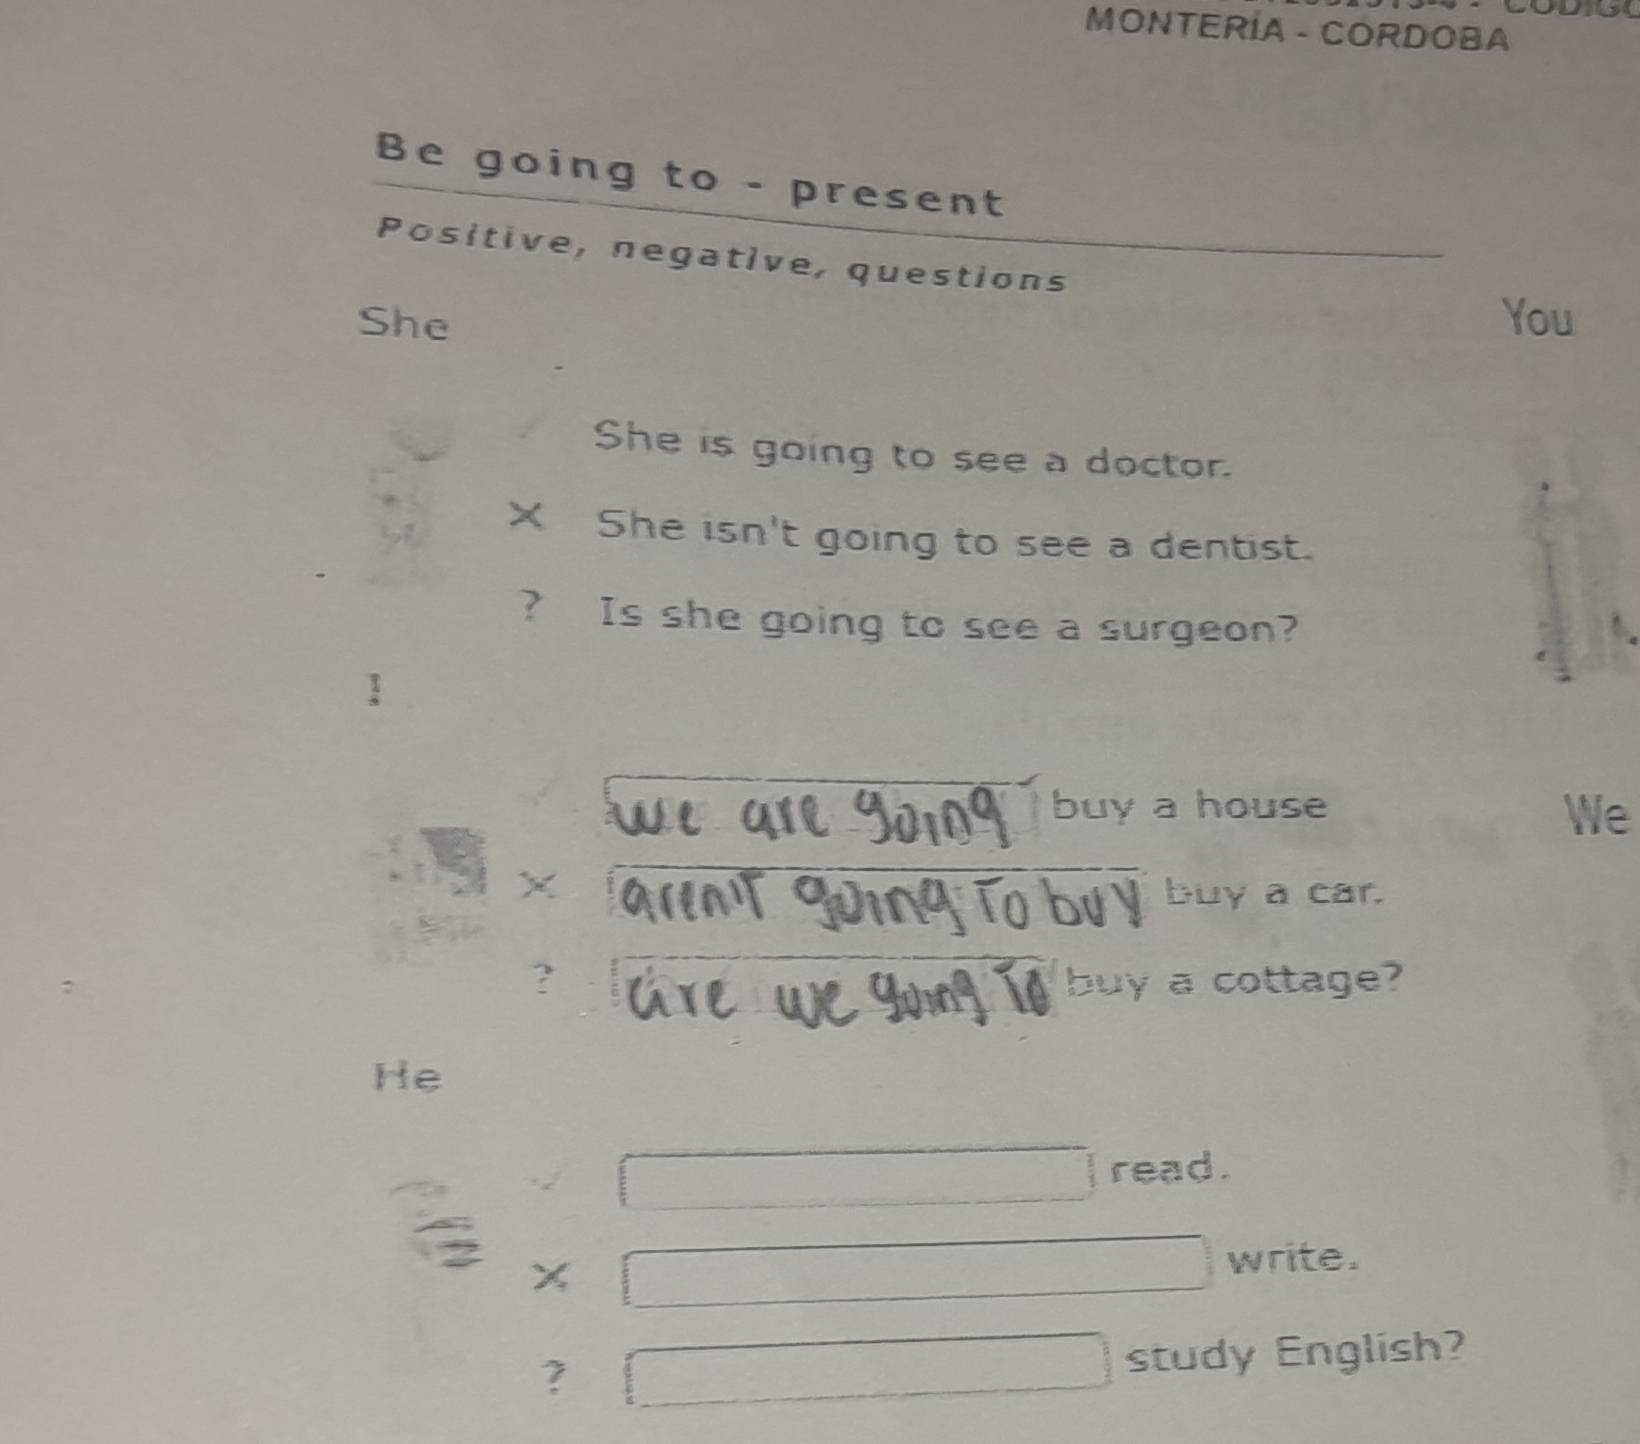 MONTERÍA - CÓRDOBA
Be going to - present
Positive, negative, questions
She
You
She is going to see a doctor.
X She isn't going to see a dentist.
? Is she going to see a surgeon?
I
we are going buy a house
We
X aren't going to buy buy a car.
? are we going to buy a cottage?
He
read.
X write.
? study English?